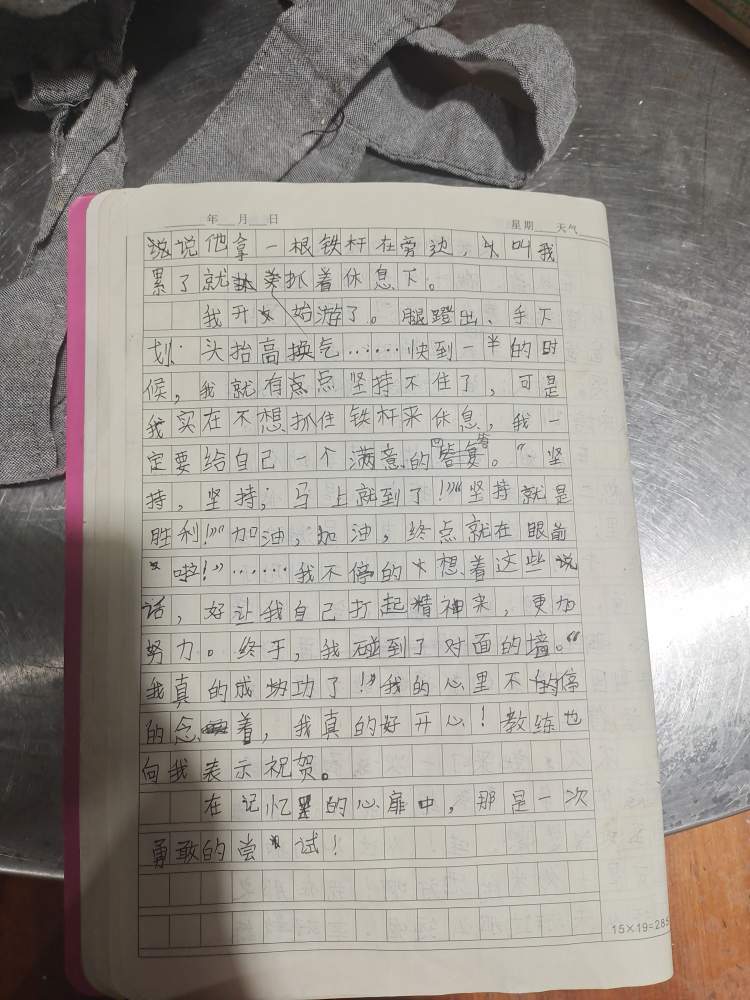 年 月 日 星期 天气
说说他拿一根铁杆在旁边，叫我
累了就抓着休息下。
我开始游了。腿蹬出、手下
划；头抬高换气……快到一半的时
候，我就有点点坚持不住了，可是
我实在不想抓住铁杆来休息，我一
定要给自己一个满意的答复。“坚
持，坚持；马上就到了！”“坚持就是
胜利！”“加油，加油，终点就在眼前
啦！”……我不停的想着这些说
话，好让我自己打起精神来，更加
努力。终于，我碰到了对面的墙。“
我真的成功了！”我的心里不停
的念着，我真的好开心！教练也
向我表示祝贺。
在记忆的心扉中，那是一次
勇敢的尝试！
15×19=285